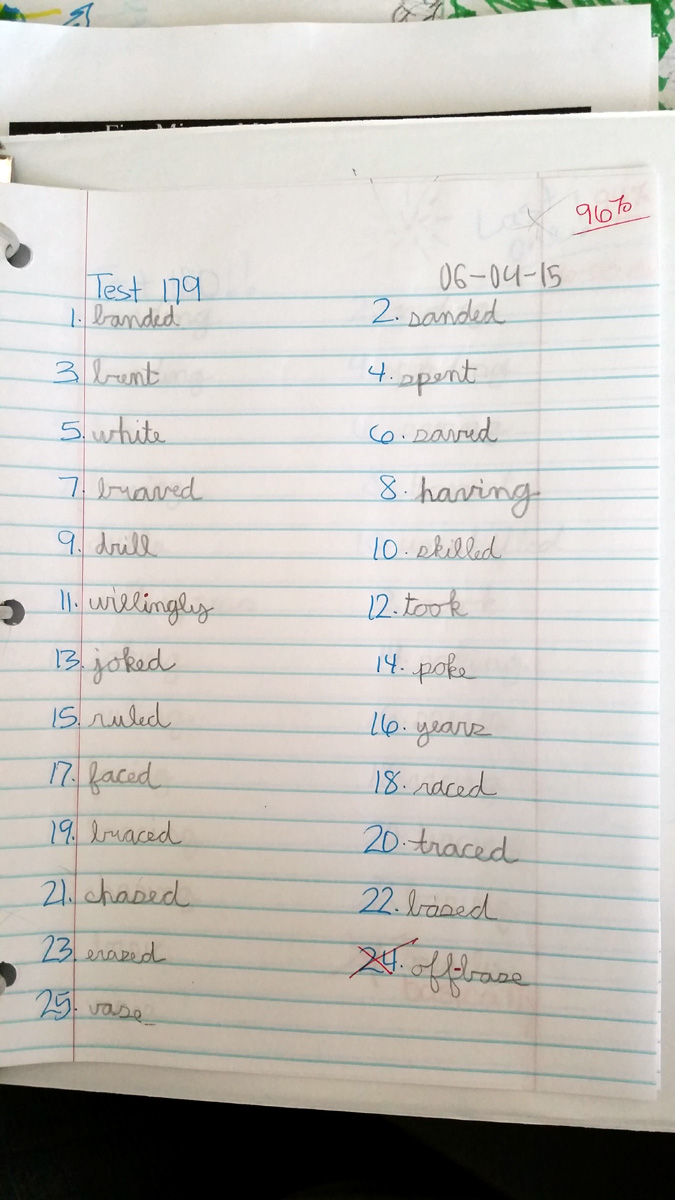 96%
Test 179 06-04-15
1. banded 2. sanded
3. brent 4. spent
5. white 6. saved
7. braved 8. having
9. drill 10. skilled
11. willingly 12. took
13. joked 14. poke
15. ruled 16. years
17. faced 18. raced
19. braced 20. traced
21. chased 22. based
23. erased 24. off-base
25. vase